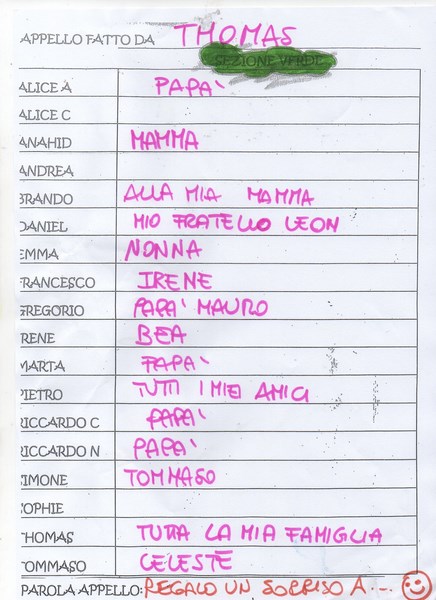 APPELLO FATTO DA THOMAS
SEZIONE VERDE
ALICE A PAPA'
ALICE C
ANAHID MAMMA
ANDREA
BRANDO ALLA MIA MAMMA
DANIEL MIO FRATELLO LEON
EMMA NONNA
FRANCESCO IRENE
GREGORIO PAPA' MAURO
IRENE BEA
MARTA PAPA'
PIETRO TUTTI I MIEI AMICI
RICCARDO C PAPA'
RICCARDO N PAPA'
SIMONE TOMMASO
SOPHIE
THOMAS TUTTA LA MIA FAMIGLIA
TOMMASO CELESTE
PAROLA APPELLO: REGALO UN SORRISO A...